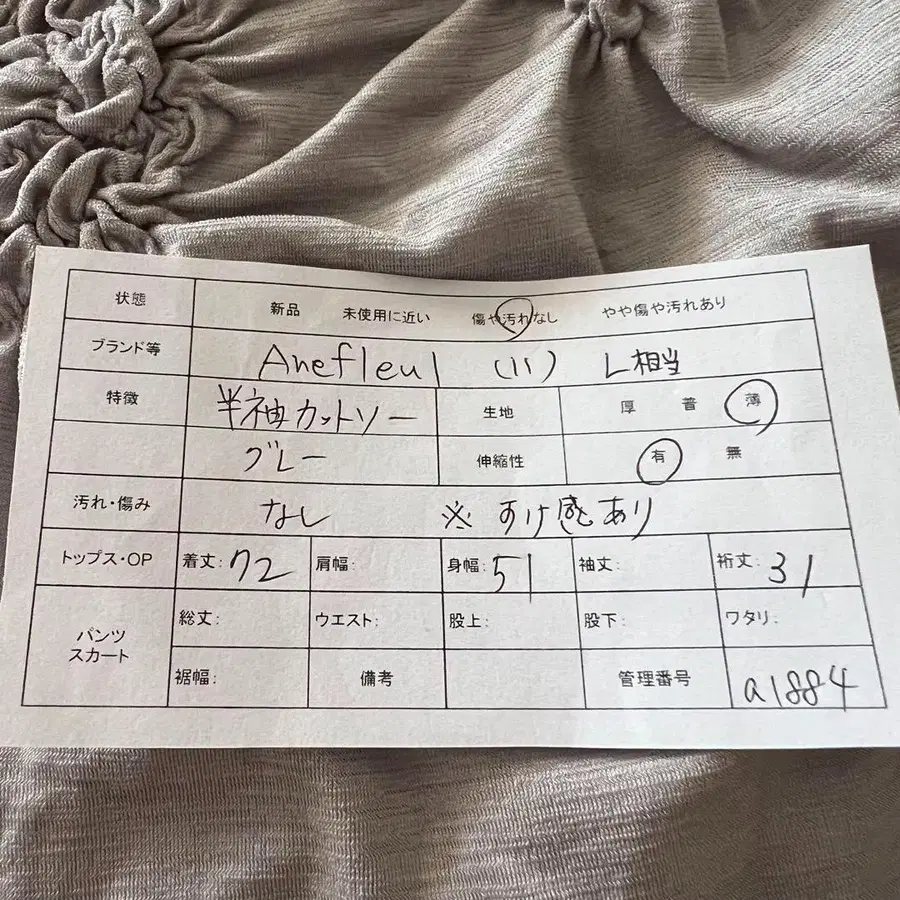 状態 新品 未使用に近い 傷や汚れなし やや傷や汚れあり
ブランド等 Anefleul (11) L相当
特徴 半袖カットソー 生地 厚 普 薄
グレー 伸縮性 有 無
汚れ・傷み なし ※ すけ感あり
トップス・OP 着丈: 72 肩幅: 身幅: 51 袖丈: 裄丈: 31
パンツ スカート 総丈: ウエスト: 股上: 股下: ワタリ:
裾幅: 備考 管理番号 a1884